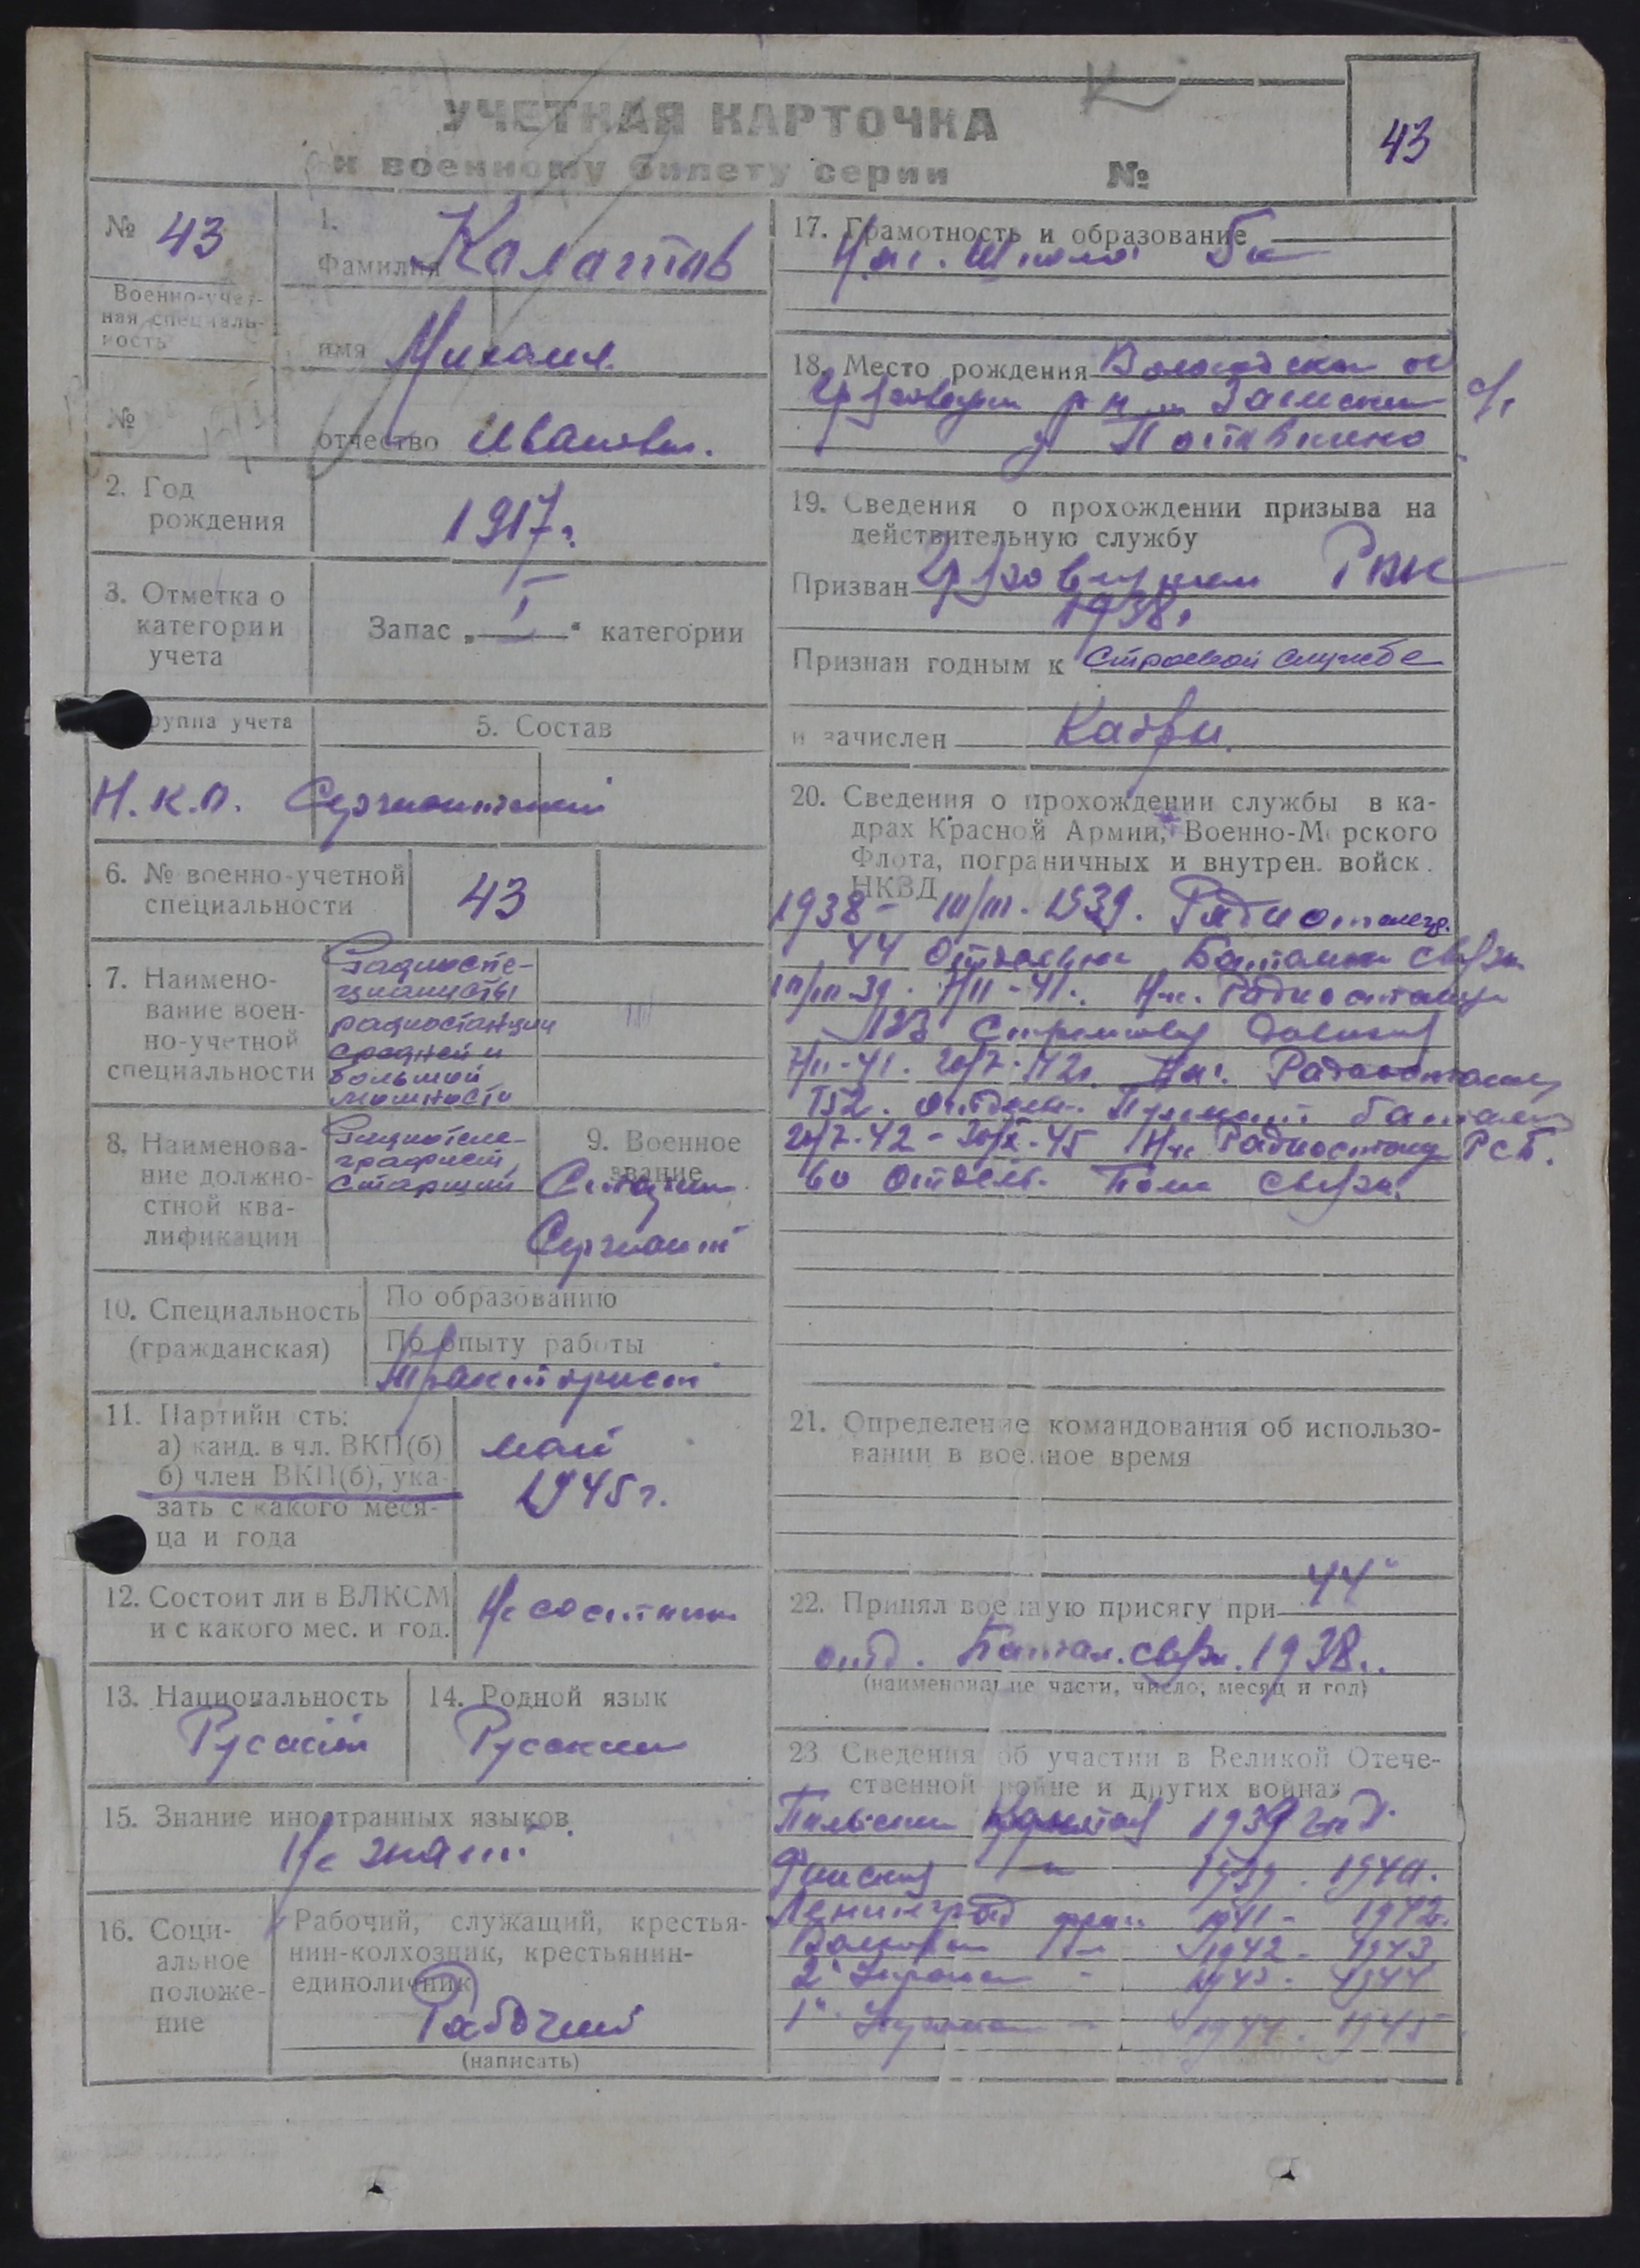 УЧЕТНАЯ КАРТОЧКА
к военному билету серии №
43
№ 43
Военно-учет-
ная специаль-
ность
№
1.
Фамилия
имя Михаил
отчество Иванович.
2. Год
рождения
1917 г.
3. Отметка о
категории
учета
Запас „ I “ категории
группа учета
5. Состав
Н.К.О. Сержантский
6. № военно-учетной
специальности
43
7. Наимено-
вание воен-
но-учетной
специальности
Радиоспе-
циалисты
радиостанции
средней и
большой
мощности
8. Наименова-
ние должно-
стной ква-
лификации
Радиотеле-
графист,
старший
9. Военное
звание
Сержант
10. Специальность
(гражданская)
По образованию
По опыту работы
Тракторист
11. Партийн сть:
а) канд. в чл. ВКП(б)
б) член ВКП(б), ука-
зать с какого меся-
ца и года
май
1945 г.
12. Состоит ли в ВЛКСМ
и с какого мес. и год.
Не состоит
13. Национальность
Русский
14. Родной язык
Русский
15. Знание иностранных языков
Не знает
16. Соци-
альное
положе-
ние
Рабочий, служащий, крестья-
нин-колхозник, крестьянин-
единоличник
Рабочий
(написать)
17. Грамотность и образование
Нач. Школа 5 к
18. Место рождения Вологодская об
р н
19. Сведения о прохождении призыва на
действительную службу
Призван Грязовецким РВК
1938 г
Признан годным к строевой службе
и зачислен Кадры.
20. Сведения о прохождении службы в ка-
драх Красной Армии, Военно-Морского
Флота, пограничных и внутрен. войск.
НКВД
1938 - III. 1939. Радиотелегр.
44 Отдельн Батальон связи
39. 41. Нач. Радиостанции
Стрелковая дивизия
41. 42 Нач. Радиостанции
отдельн. Пулеметн батальон
42 - 45 Нач Радиостанц РСБ.
60 Отдель. Полк связи.
21. Определение командования об использо-
вании в военное время
22. Принял военную присягу при 44
отд. Баттал. связи. 1938..
(наименование части, число, месяц и год)
23. Сведения об участии в Великой Отече-
ственной войне и других войнах
1939 год.
Финская 1939. 1940.
Ленинград фрон. 1941 - 1942.
1942 - 1943
2й Украин - 1943 - 1944
1й Украин - 1944. 1945